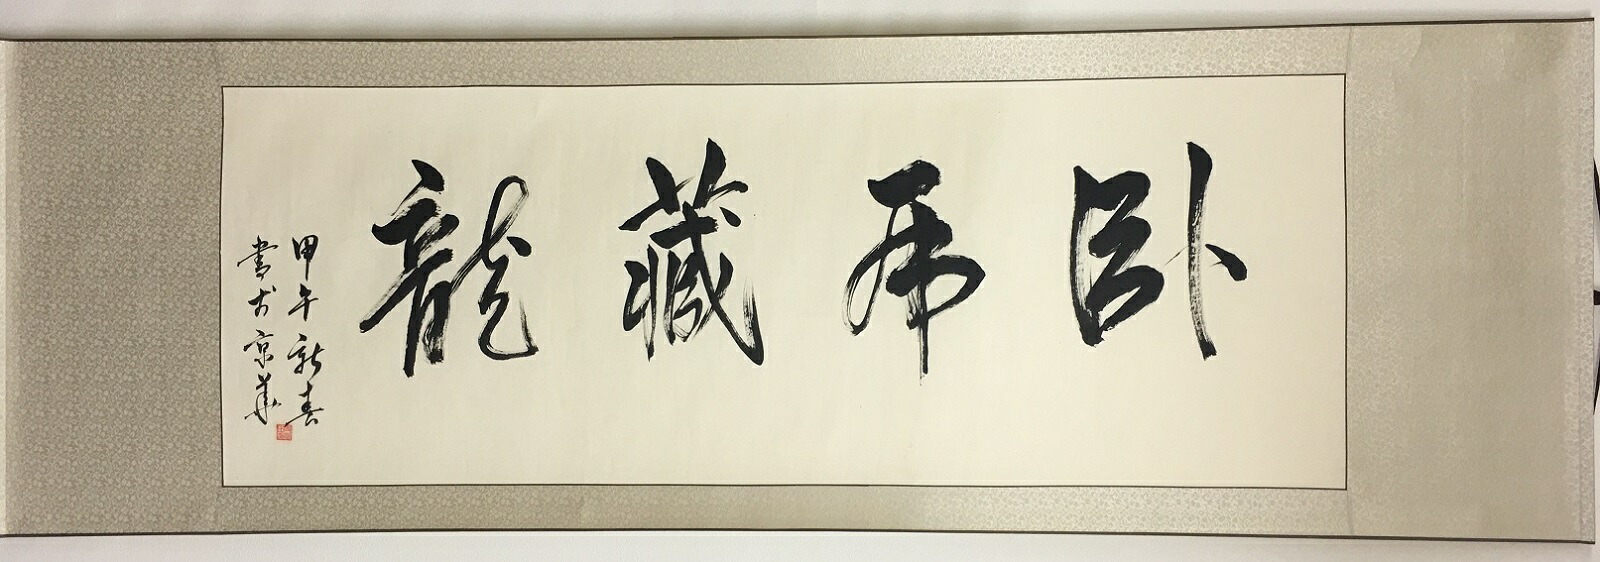 卧虎藏龍
甲午新春
書於京華